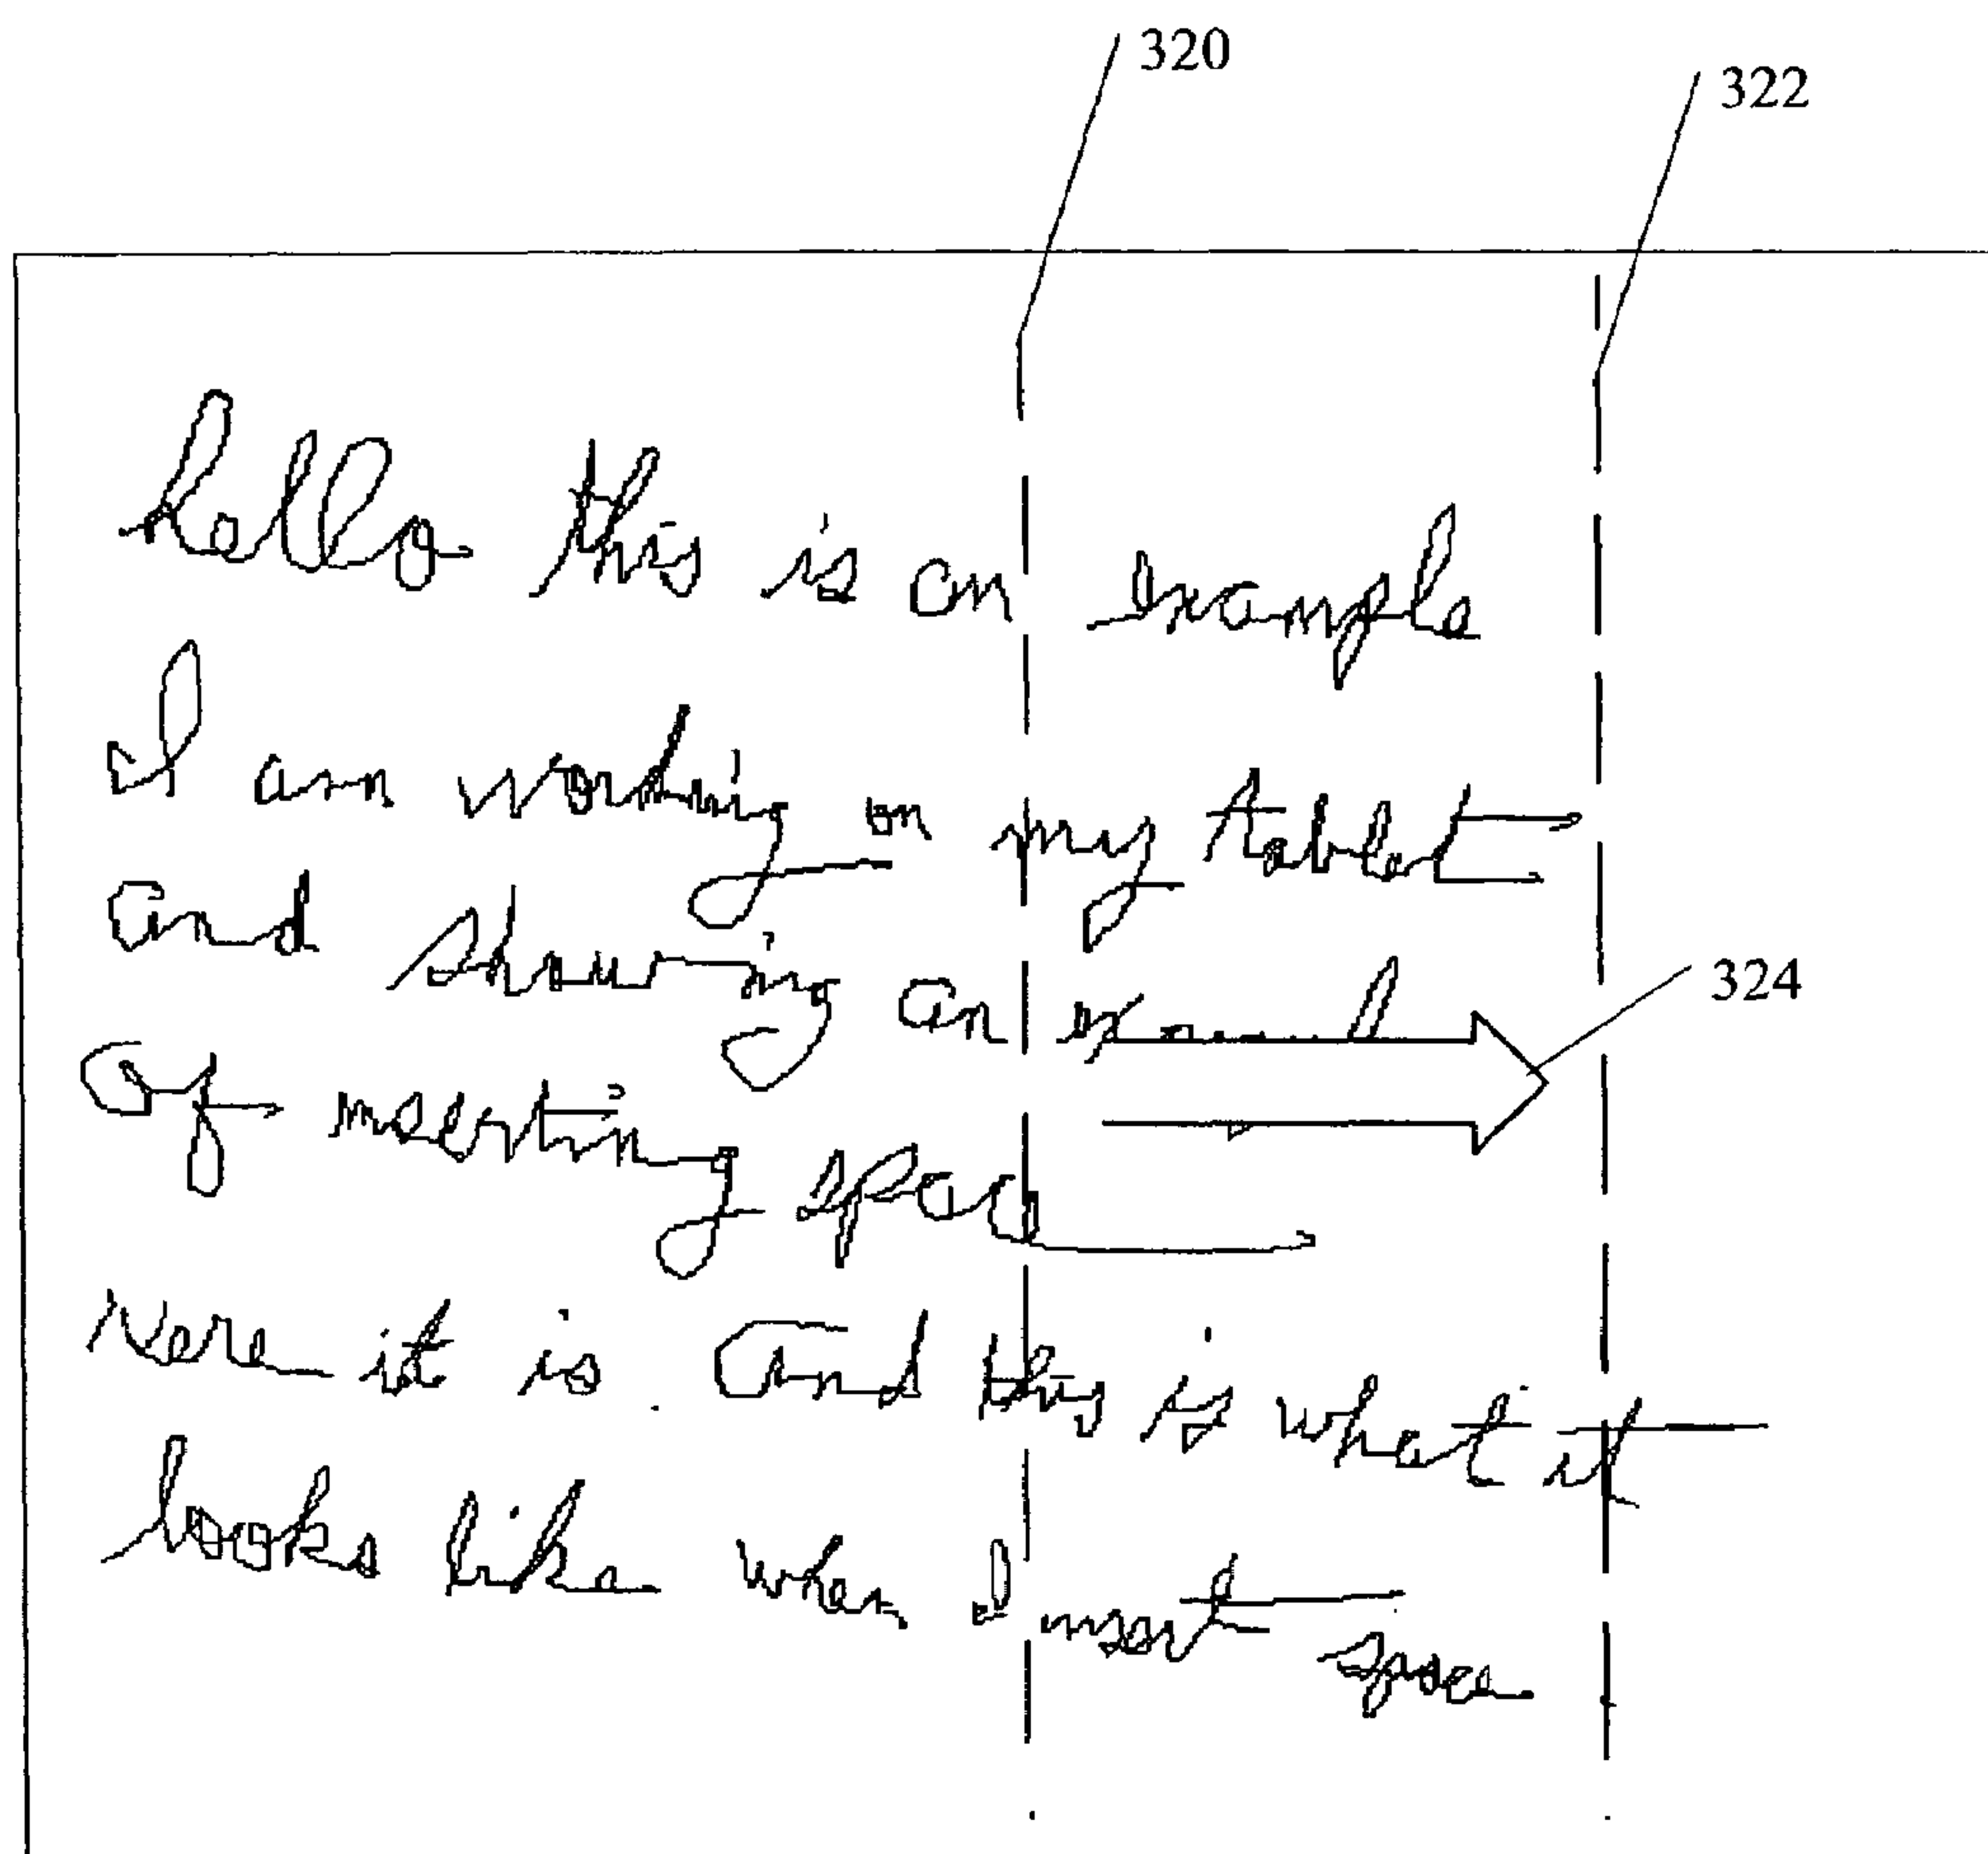 320
322
hello this is an example
I am working on my tablet
and showing an
324
of inserting space
here it is. and this is what it
looks like when I insert space